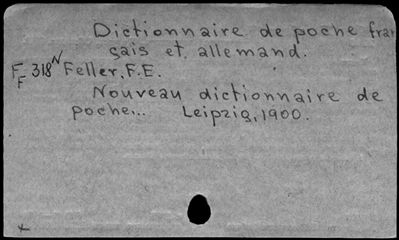 Dictionnaire de poche fran
çais et allemand.
F 318 N Feller, F.E.
F
Nouveau dictionnaire de
poche... Leipzig, 1900.
x